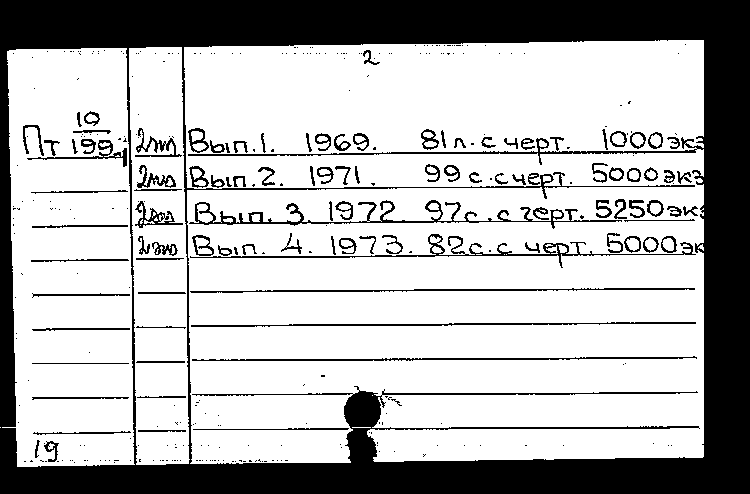 2
10
Пт 199 2 экз Вып. 1. 1969. 81 л. с черт. 1000 экз
2 экз Вып. 2. 1971. 99 с. с черт. 5000 экз
2 экз Вып. 3. 1972. 97 с. с черт. 5250 экз
2 экз Вып. 4. 1973. 82 с. с черт. 5000 эк
19